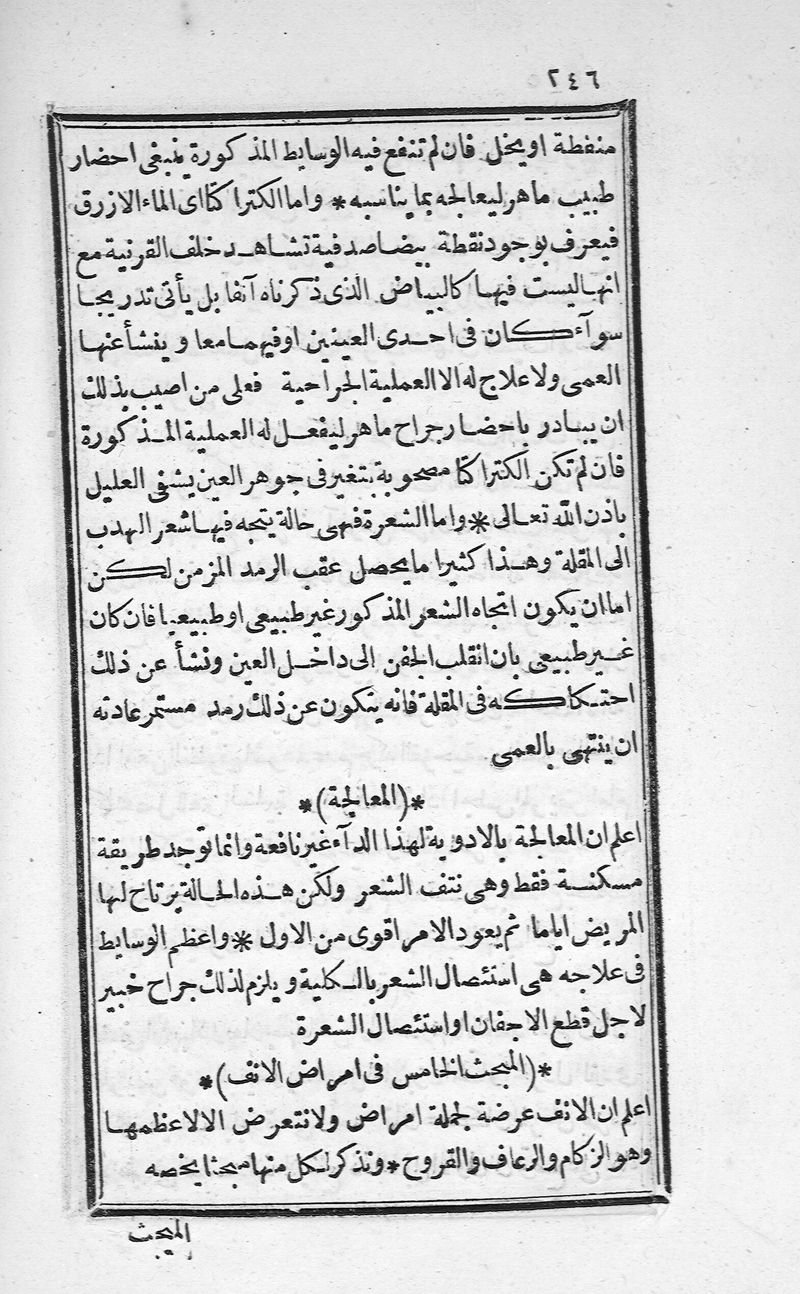 ٢٤٦
منفطة او بخل فان لم تنفع فيه الوسايط المذكورة ينبغى احضار
طبيب ماهر ليعالجه بما يناسبه * واما الكتراكتا اى الماء الازرق
فيعرف بوجود نقطة بيضا صدفية تشاهد خلف القرنية مع
انها ليست فيها كالبياض الذى ذكرناه آنفا بل يأتى تدريجا
سوآء كان فى احدى العينين او فيهما معا وينشأ عنها
العمى ولا علاج له الا العملية الجراحية فعلى من اصيب بذلك
ان يبادر باحضار جراح ماهر ليفعل له العملية المذكورة
فان لم تكن الكتراكتا مصحوبة بتغير فى جوهر العين يشفى العليل
باذن الله تعالى * واما الشعرة فهى حالة يتجه فيها شعر الهدب
الى المقلة وهذا كثيرا ما يحصل عقب الرمد المزمن لكن
اما ان يكون اتجاه الشعر المذكور غير طبيعى او طبيعيا فان كان
غير طبيعى بان انقلب الجفن الى داخل العين ونشأ عن ذلك
احتكاكه فى المقلة فانه يتكون عن ذلك رمد مستمر عادته
ان ينتهى بالعمى
*(المعالجة)*
اعلم ان المعالجة بالادوية لهذا الدآء غير نافعة وانما توجد طريقة
مسكنة فقط وهى نتف الشعر ولكن هذه الحالة يرتاح لها
المريض اياما ثم يعود الامر اقوى من الاول * واعظم الوسايط
فى علاجه هى استئصال الشعر بالكلية ويلزم لذلك جراح خبير
لاجل قطع الاجفان او استئصال الشعرة
*(المبحث الخامس فى امراض الانف)*
اعلم ان الانف عرضة لجملة امراض ولا نتعرض الا لاعظمها
وهو الزكام والرعاف والقروح * ونذكر لكل منها مبحثا يخصه
المبحث